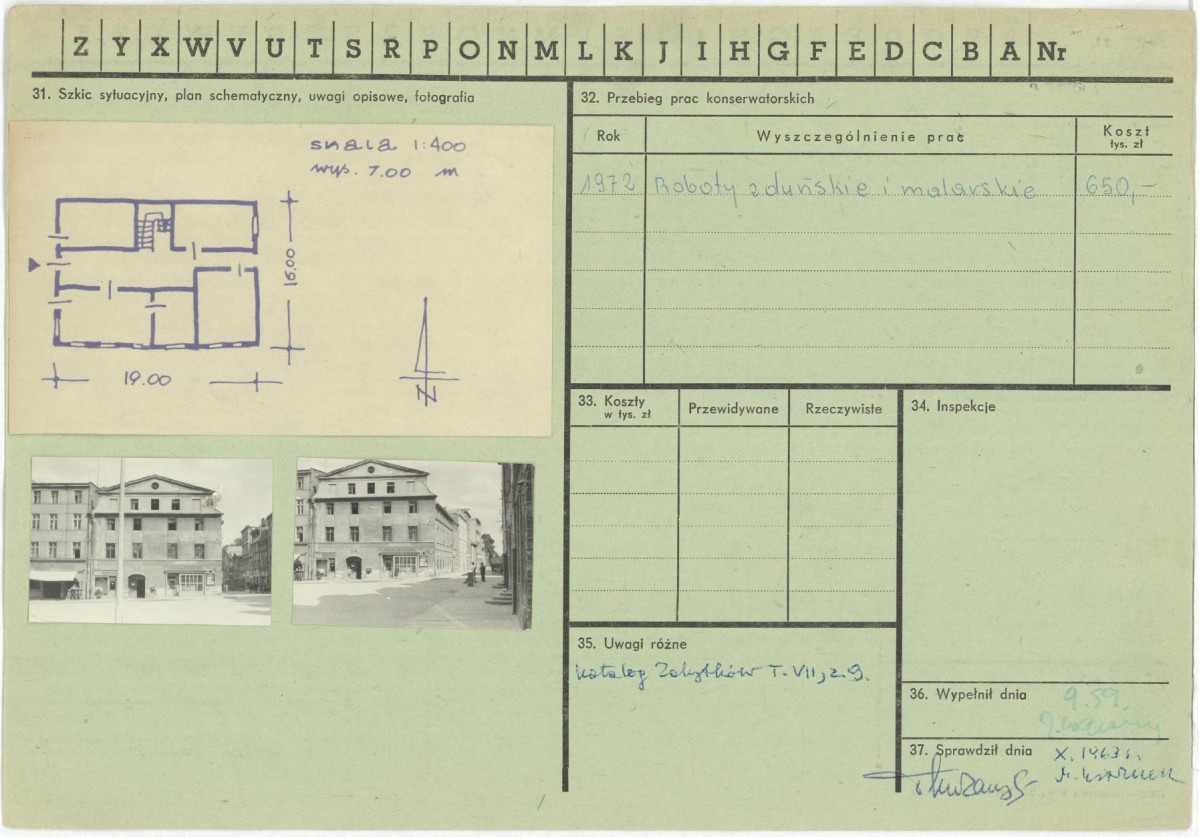 Z Y X W V U T S R P O N M L K J I H G F E D C B A Nr
31. Szkic sytuacyjny, plan schematyczny, uwagi opisowe, fotografia
skala 1:400
wys. 7.00 m
16.00
19.00
N
32. Przebieg prac konserwatorskich
Rok Wyszczególnienie prac Koszt tys. zł
1972 Roboty zduńskie i malarskie 650,-
33. Koszty w tys. zł Przewidywane Rzeczywiste
34. Inspekcje
35. Uwagi różne
Katalog Zabytków T. VII, z. 9.
36. Wypełnił dnia
9.59.
37. Sprawdził dnia
X. 1963 r.